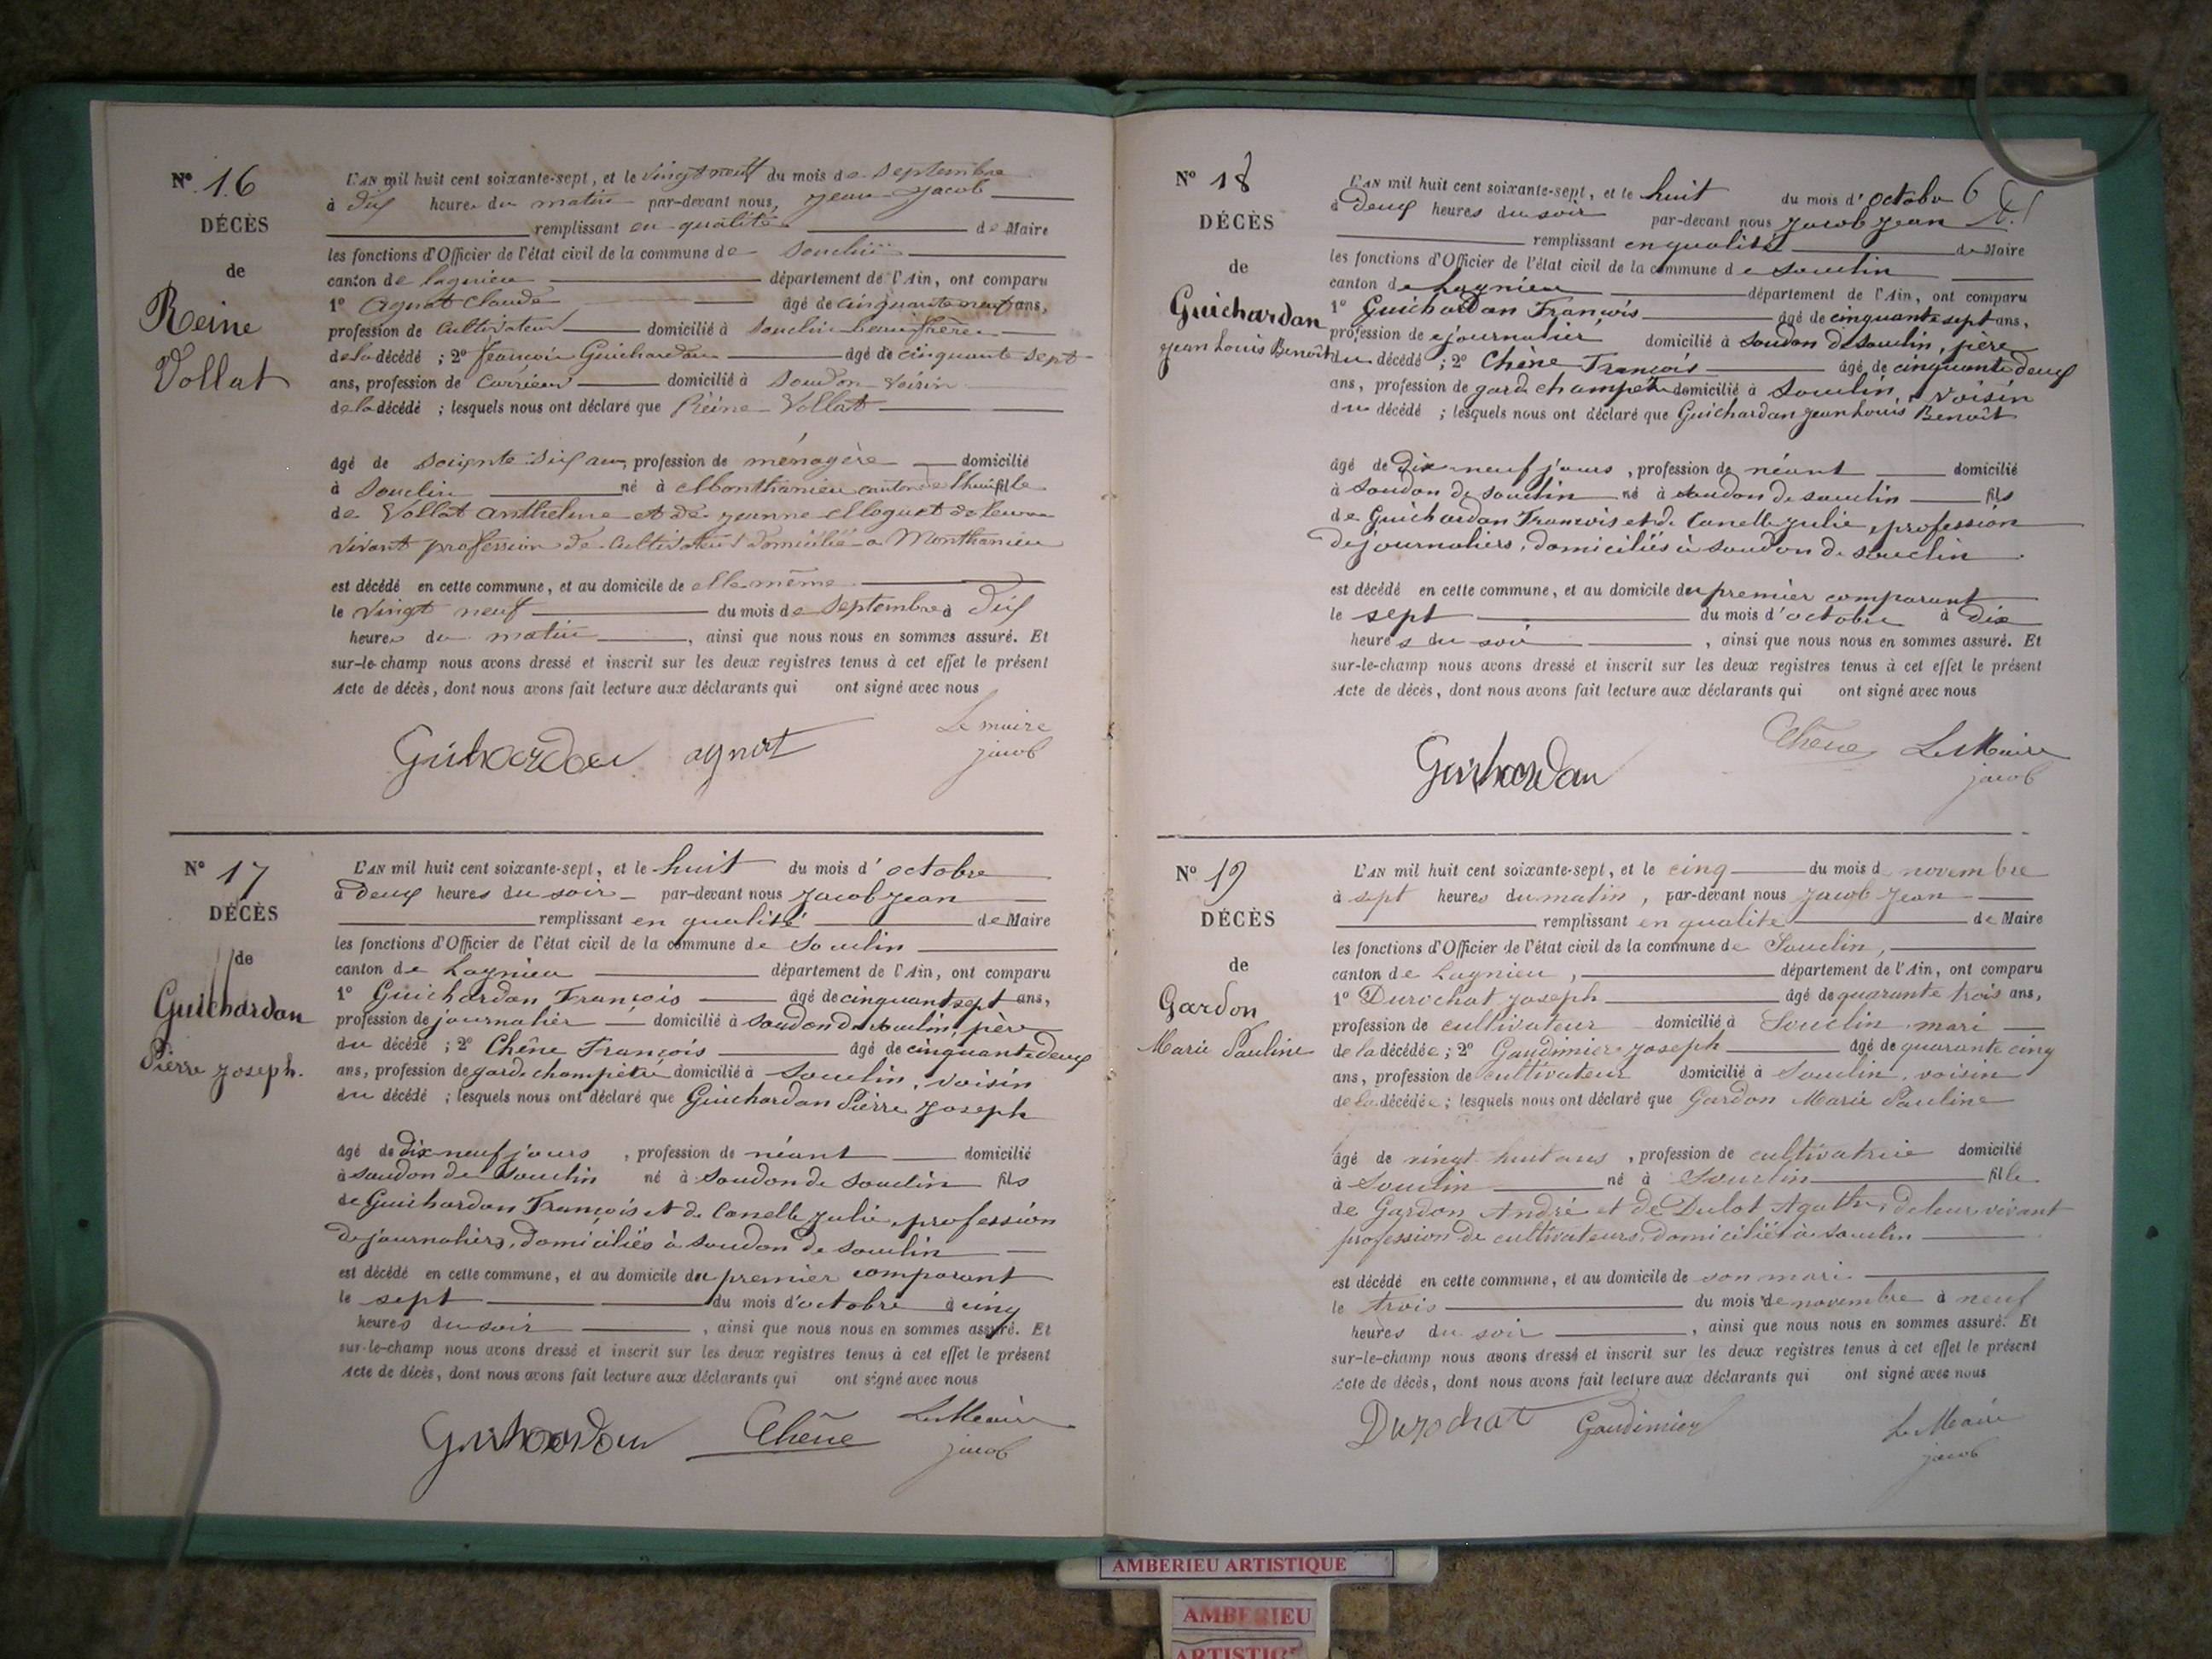 N° 16
DÉCÈS
de
Reine
Vollat
L'AN mil huit cent soixante-sept, et le vingt neuf du mois de septembre
à dix heures du matin par-devant nous, jean jacob
remplissant en qualité de Maire
les fonctions d'Officier de l'état civil de la commune de Souclin
canton de lagnieu département de l'Ain, ont comparu
1° Agnat Claude âgé de cinquante neuf ans,
profession de Cultivateur domicilié à Souclin beaufrère
de la décédé ; 2° françois Guichardan âgé de cinquante sept
ans, profession de domicilié à Soudon voisin
de la décédé ; lesquels nous ont déclaré que Reine Vollat
âgé de ans, profession de ménagère domicilié
à Souclin né à canton de fille
de Vollat anthelme et de jeanne de leur
vivant profession de Cultivateur domicilié a Monthanieu
est décédé en cette commune, et au domicile de elle même
le vingt neuf du mois de septembre à dix
heures du matin, ainsi que nous nous en sommes assuré. Et
sur-le-champ nous avons dressé et inscrit sur les deux registres tenus à cet effet le présent
Acte de décès, dont nous avons fait lecture aux déclarants qui ont signé avec nous
Guichardan agnat Le maire
jacob
N° 17
DÉCÈS
de
Guichardan
Pierre joseph.
L'AN mil huit cent soixante-sept, et le huit du mois d'octobre
à deux heures du soir par-devant nous jacob jean
remplissant en qualité de Maire
les fonctions d'Officier de l'état civil de la commune de Souclin
canton de Lagnieu département de l'Ain, ont comparu
1° Guichardan François âgé de cinquant sept ans,
profession de journalier domicilié à soudon de souclin, père
du décédé ; 2° Chêne François âgé de cinquante deux
ans, profession de garde champetre domicilié à Souclin, voisin
du décédé ; lesquels nous ont déclaré que Guichardan Pierre joseph
âgé de dix neuf jours, profession de néant domicilié
à soudon de souclin né à soudon de souclin fils
de Guichardan François et de Canelle julie, profession
de journaliers, domiciliés à soudon de souclin
est décédé en cette commune, et au domicile du premier comparant
le sept du mois d'octobre à cinq
heures du soir, ainsi que nous nous en sommes assuré. Et
sur-le-champ nous avons dressé et inscrit sur les deux registres tenus à cet effet le présent
Acte de décès, dont nous avons fait lecture aux déclarants qui ont signé avec nous
Guichardan Chêne Le Maire
jacob
N° 18
DÉCÈS
de
Guichardan
jean Louis Benoît
L'AN mil huit cent soixante-sept, et le huit du mois d'octobre 6
à deux heures du soir par-devant nous jacob jean
remplissant en qualité de Maire
les fonctions d'Officier de l'état civil de la commune de souclin
canton de Lagnieu département de l'Ain, ont comparu
1° Guichardan François âgé de cinquante sept ans,
profession de journalier domicilié à soudon de souclin, père
du décédé ; 2° Chêne François âgé de cinquante deux
ans, profession de gard champêtre domicilié à souclin, voisin
du décédé ; lesquels nous ont déclaré que Guichardan jean Louis Benoît
âgé de dix neuf jours, profession de néant domicilié
à soudon de souclin né à soudon de souclin fils
de Guichardan François et de Canelle julie, profession
de journaliers, domiciliés à soudon de souclin
est décédé en cette commune, et au domicile du premier comparant
le sept du mois d'octobre à dix
heures du soir, ainsi que nous nous en sommes assuré. Et
sur-le-champ nous avons dressé et inscrit sur les deux registres tenus à cet effet le présent
Acte de décès, dont nous avons fait lecture aux déclarants qui ont signé avec nous
Guichardan Chêne Le Maire
jacob
N° 19
DÉCÈS
de
Gardon
Marie Pauline
L'AN mil huit cent soixante-sept, et le cinq du mois d novembre
à sept heures du matin, par-devant nous jacob jean
remplissant en qualité de Maire
les fonctions d'Officier de l'état civil de la commune de Souclin,
canton de Lagnieu, département de l'Ain, ont comparu
1° Durochat joseph âgé de quarante trois ans,
profession de cultivateur domicilié à Souclin mari
de la décédée ; 2° Gaudimier joseph âgé de quarante cinq
ans, profession de cultivateur domicilié à Souclin, voisin
de la décédée ; lesquels nous ont déclaré que Gardon Marie Pauline
âgé de vingt huit ans, profession de cultivatrice domicilié
à Souclin né à Souclin fille
de Gardon André et de Dulot Agathe, de leur vivant
profession de cultivateurs, domiciliés à Souclin
est décédé en cette commune, et au domicile de son mari
le trois du mois de novembre à neuf
heures du soir, ainsi que nous nous en sommes assuré. Et
sur-le-champ nous avons dressé et inscrit sur les deux registres tenus à cet effet le présent
Acte de décès, dont nous avons fait lecture aux déclarants qui ont signé avec nous
Durochat Gaudimier Le Maire
jacob
AMBERIEU ARTISTIQUE
AMBERIEU
ARTISTIQUE